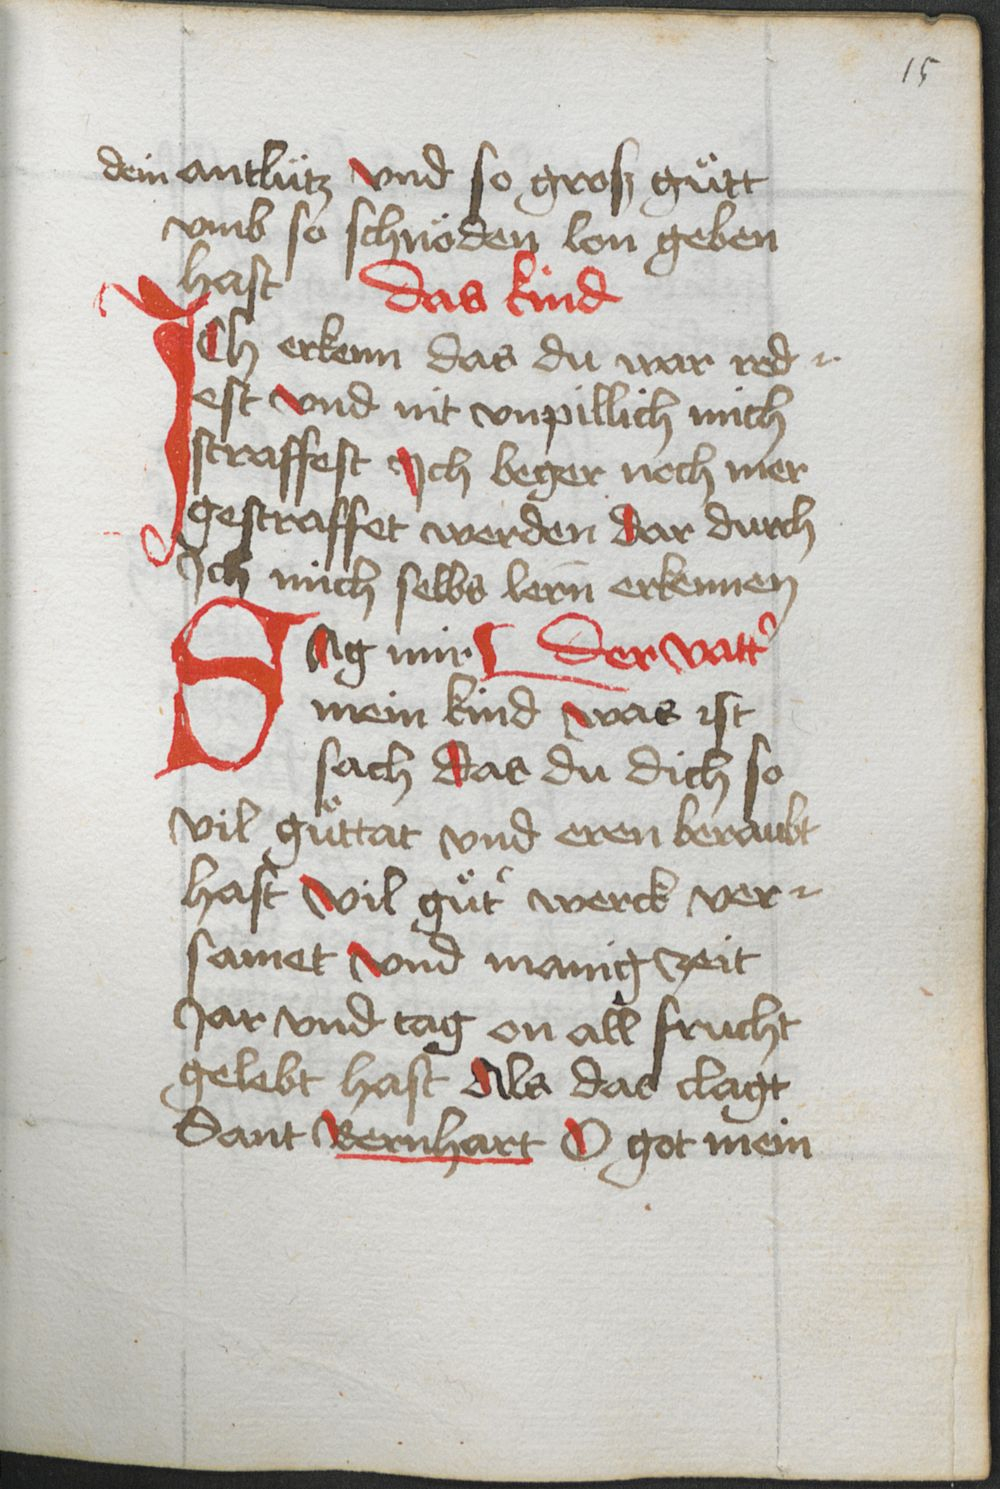 15
dein antlütz vnd so grosz gütt
vmb so schnöden lon geben
hast das kind
Ich erkenn das du war red⸗
est vnd nit vnpillich mich
straffest Ich beger noch mer
gestraffet werden dar durch
Ich mich selbs lern̄ erkennen
SAg mir der vatt᾿
mein kind was ist
sach das du dich so
vil güttat vnd eren beraubt
hast vil güt᾿ werck ver⸗
samet vnd manig zeit
Jar vnd tag on all frucht
gelebt hast Als das clagt
Sant Bernhart O got mein